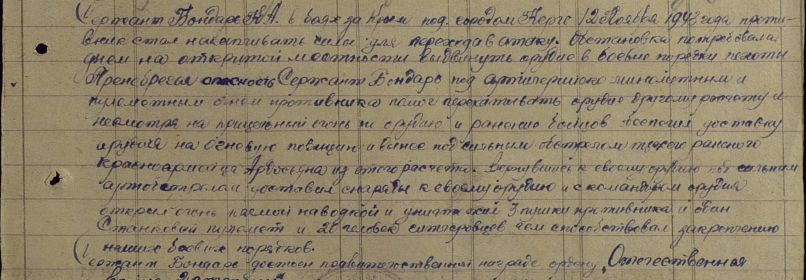 Сержант Бондарь К.А. в боях за Крым под городом Керч 12 Ноября 1943 года проти-
вник стал накапливать силы для перехода в атаку. Обстановка потребовала
днем на открытой местности выдвинуть орудие в боевые порядки пехоты
Пренебрегая опасность Сержант Бондарь под артиллерийско минометным и
пулеметным огнем противника помог перекатывать орудие другому расчету и
несмотря на прицельный огонь по орудию и ранению бойцов доставку
орудия на основную позицию и вынес под сильным обстрелом тяжело раненого
красноармейца из этого расчета. Вернувшись к своему орудию под сильным
артобстрелом доставил снаряды к своему орудию и с командиром орудия
открыл огонь прямой наводкой и уничтожил 3 пушки противника и один
Станковый пулемет и 20 гитлеровцев чем способствовал закреплению
наших боевых порядков.
Сержант Бондарь достоин правительственной награде ордену „Отечественная